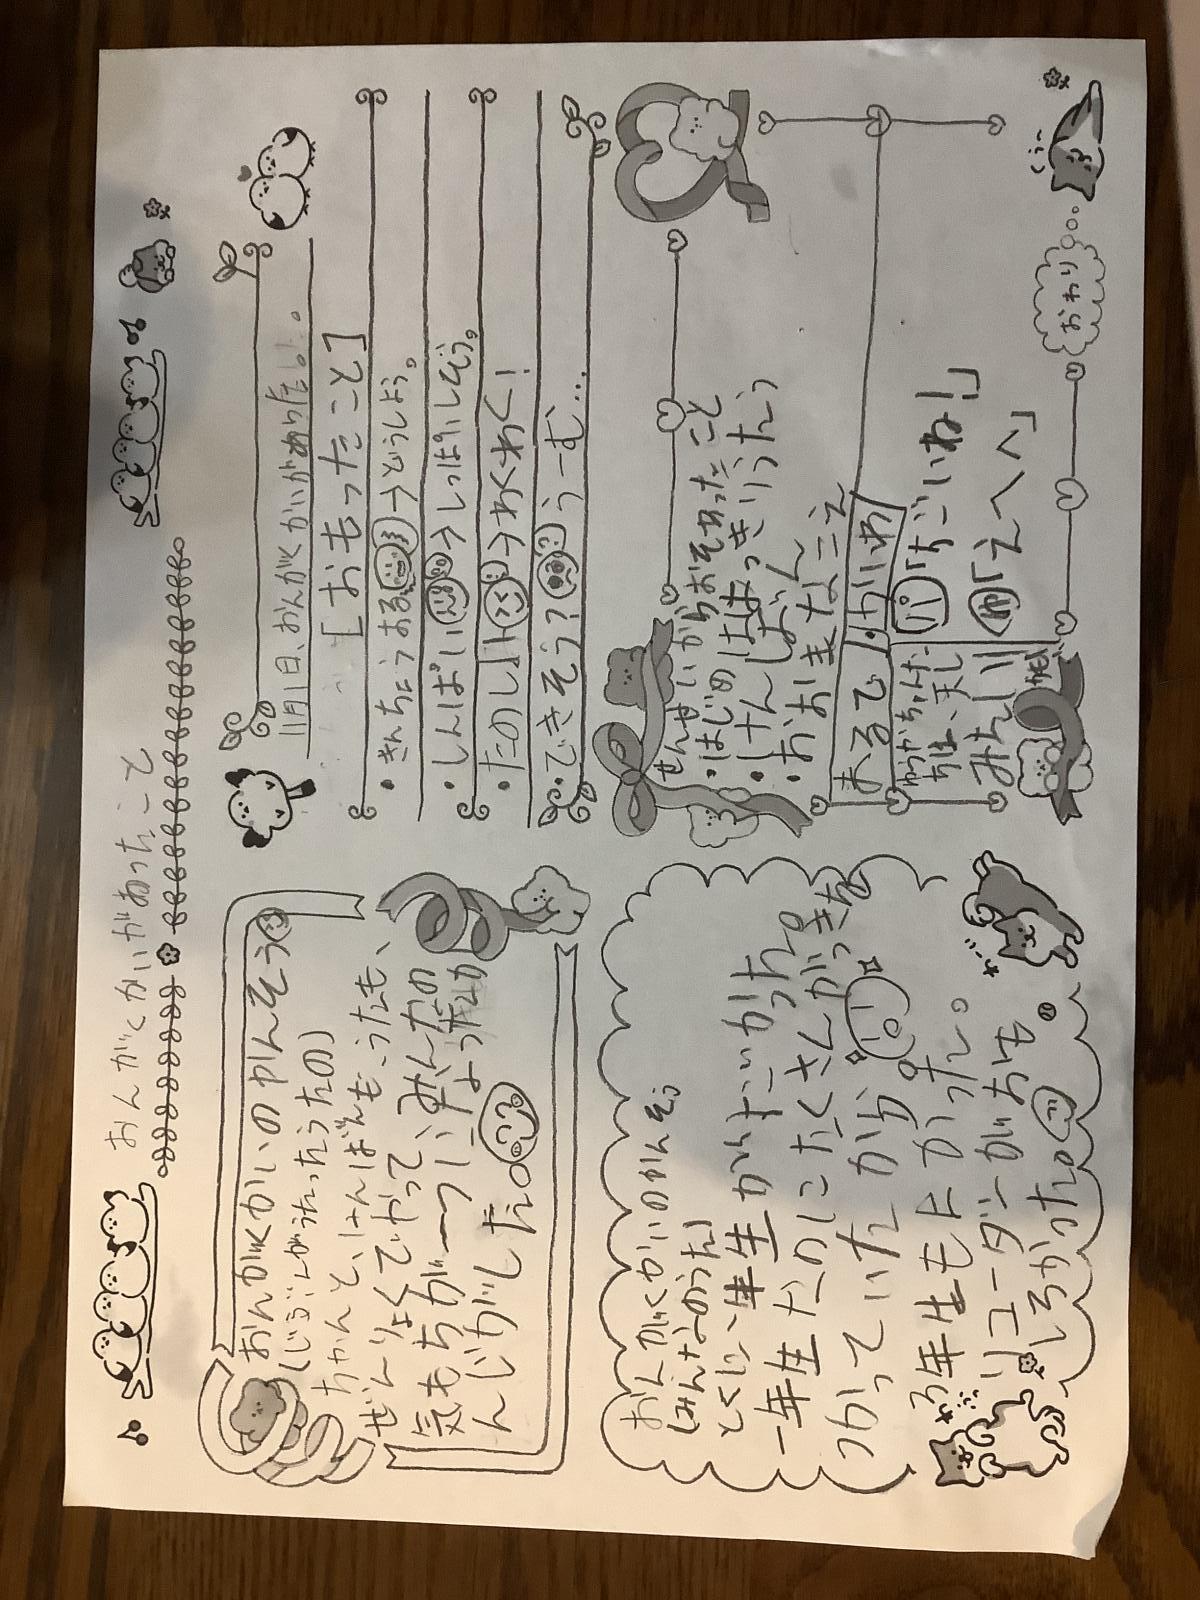 おんがくかいがあったこと
おんがくかいのかんそう
(じぶんがうたったうたの)
ちゃんと、けんばんも、うたも、
ぜんりょくでやって、みんなの
気もちが一つによったか
んじがした。
おんがくかいのかんそう
(みんなのうた)
とくに、一年生がすごかった。
一年生なのにたくさんがっきを
つかっていたから。
3年生もよかった。
リコーダーがおも
しろかった。
11月1日、おんがくかいがありました。
[おもったこと]
・きんちょうする→どうしよう。
・しんぱい→しっぱいしそう。
・たのしみ→わくわく!
・できそう?うーむ…
せんせいからおそわったこと
・はじめははっきりうたう
・けんばん
・おおきなこえ
来るで!
かいわ
パ「すごいね!」
「えへへ」
おわり